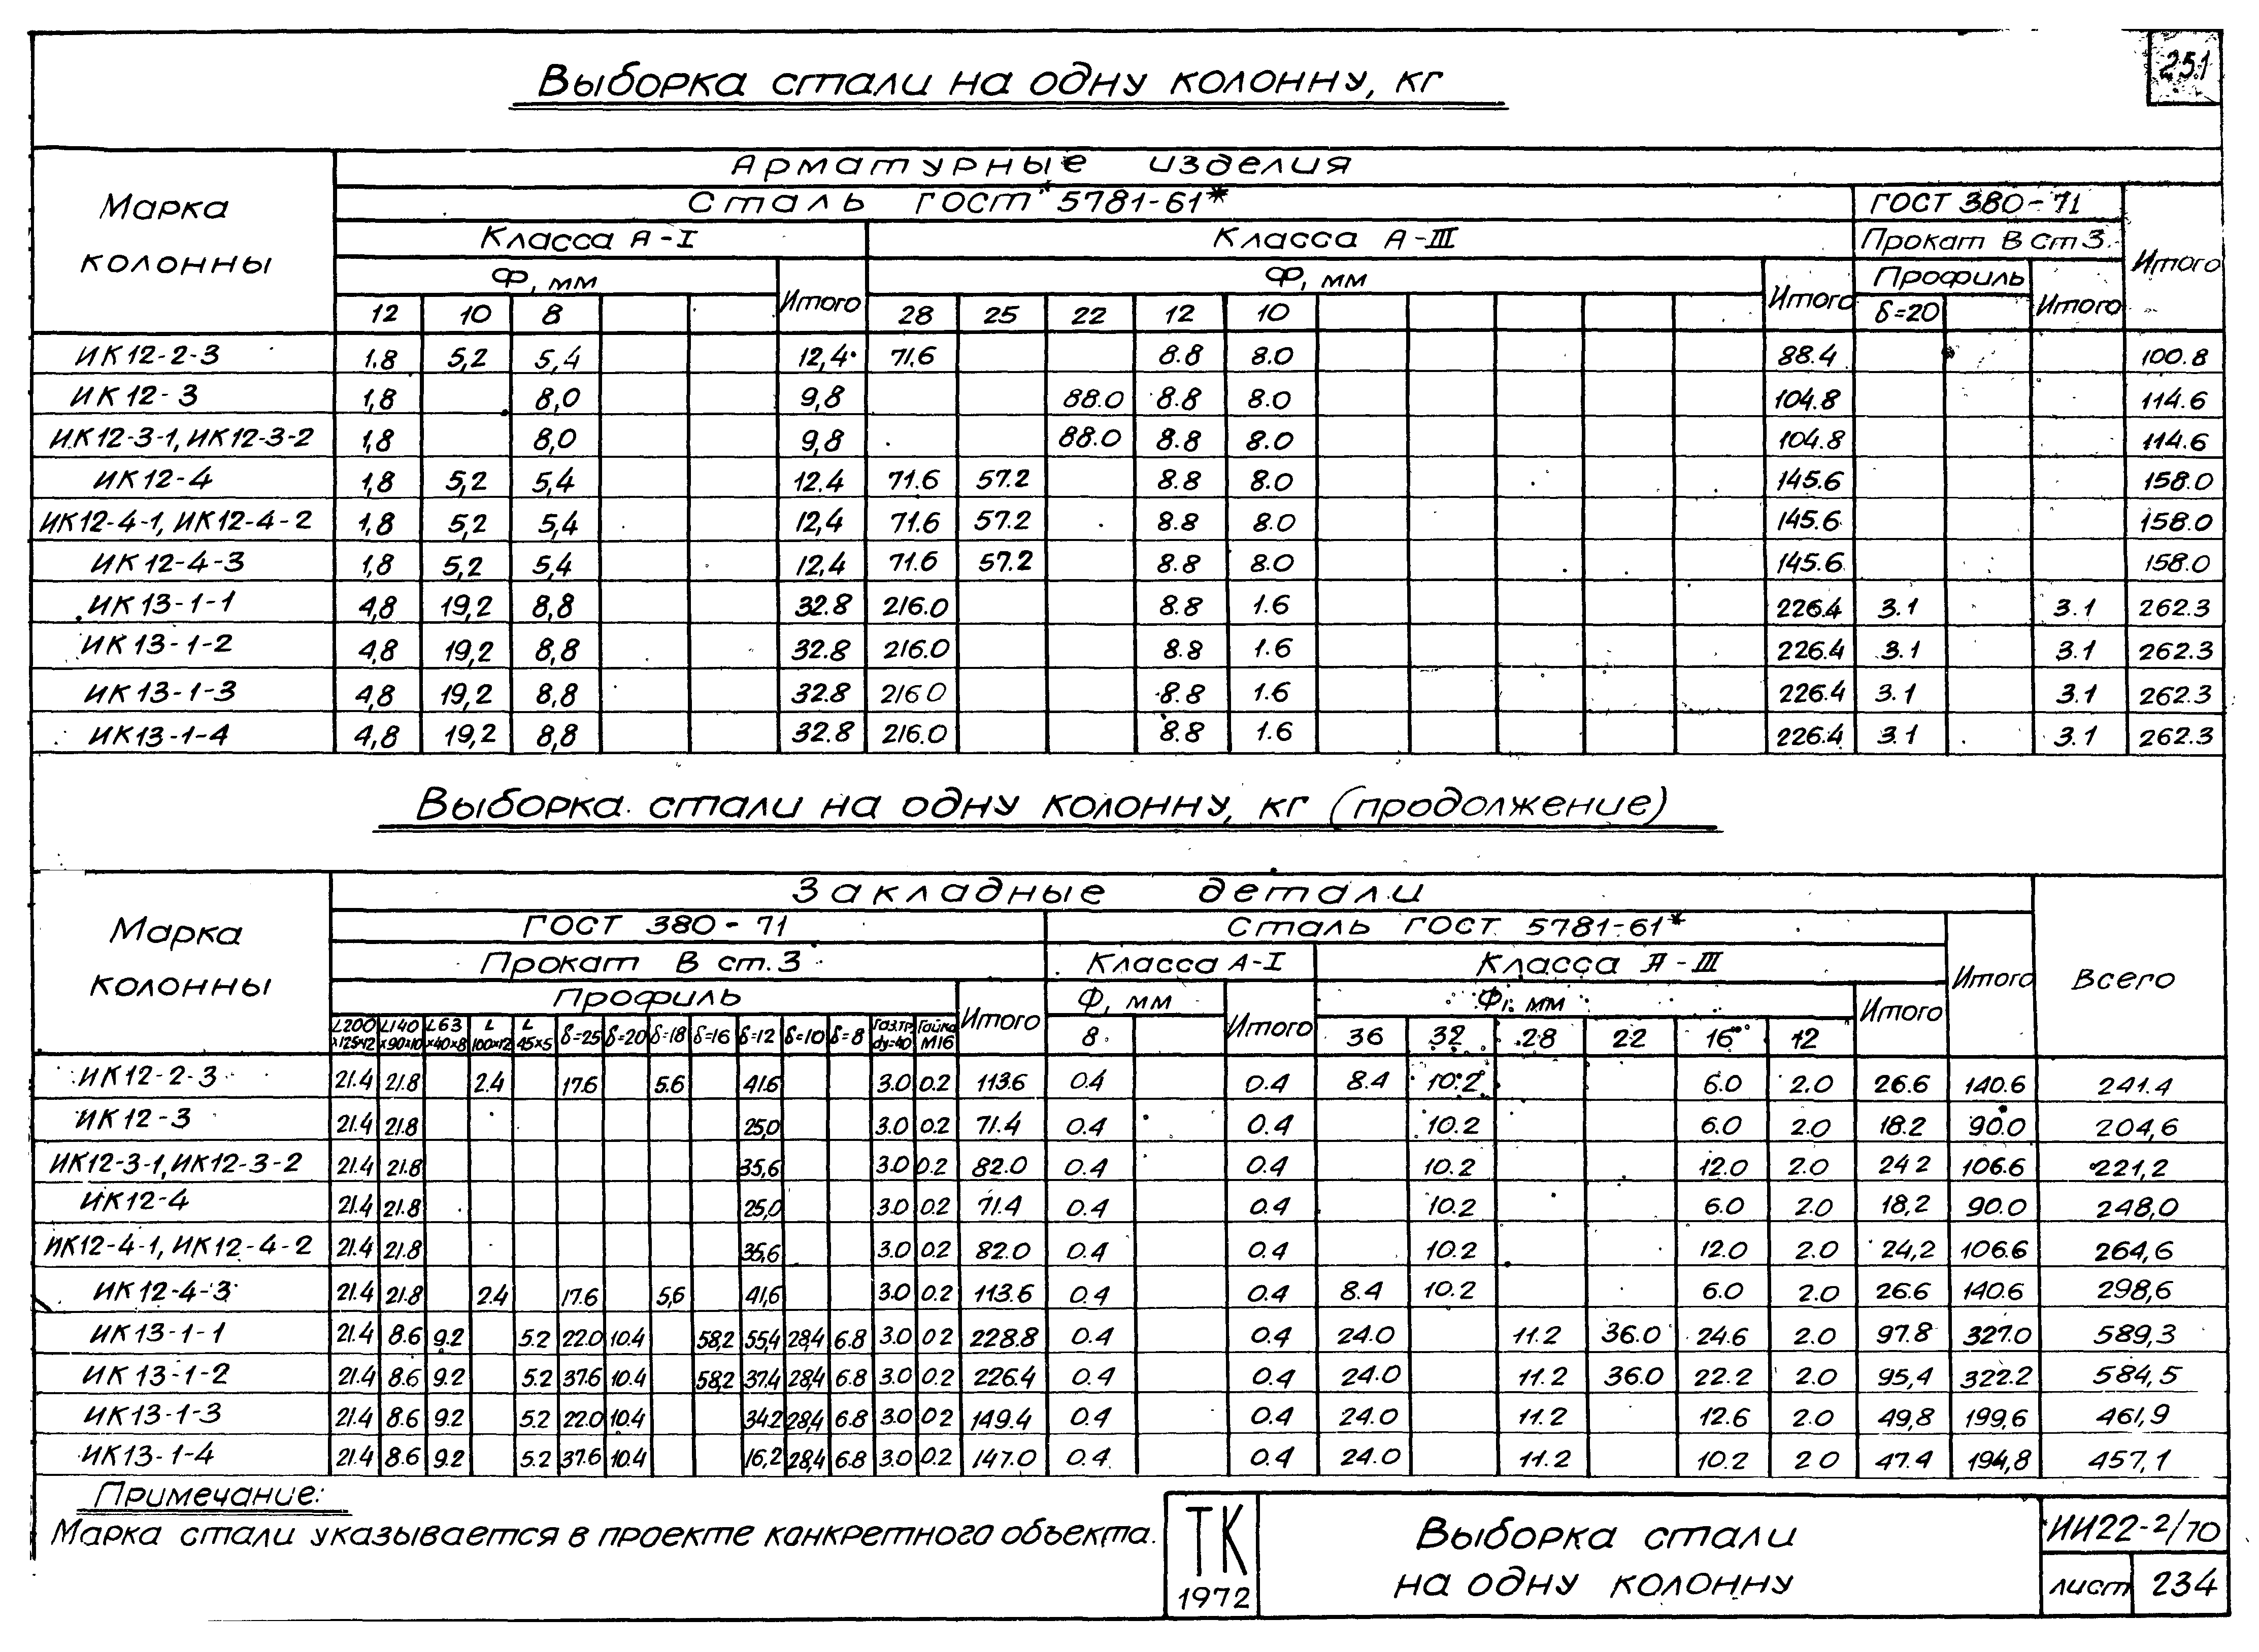 251
Выборка стали на одну колонну, кг
Марка колонны
Арматурные изделия
Сталь ГОСТ 5781-61*
ГОСТ 380-71
Итого
Класса А-I
Класса А-III
Прокат В ст 3
Ф, мм
Итого
Ф, мм
Итого
Профиль
Итого
12 10 8 28 25 22 12 10 δ=20
ИК12-2-3 1.8 5,2 5,4 12,4 71.6 8.8 8.0 88.4 100.8
ИК12-3 1,8 8,0 9,8 88.0 8.8 8.0 104.8 114.6
ИК12-3-1, ИК12-3-2 1,8 8,0 9,8 88.0 8.8 8.0 104.8 114.6
ИК12-4 1,8 5,2 5,4 12.4 71.6 57.2 8.8 8.0 145.6 158.0
ИК12-4-1, ИК12-4-2 1,8 5,2 5,4 12,4 71.6 57.2 8.8 8.0 145.6 158.0
ИК12-4-3 1,8 5,2 5,4 12,4 71.6 57.2 8.8 8.0 145.6 158.0
ИК13-1-1 4,8 19,2 8,8 32.8 216.0 8.8 1.6 226.4 3.1 3.1 262.3
ИК13-1-2 4,8 19,2 8,8 32.8 216.0 8.8 1.6 226.4 3.1 3.1 262.3
ИК13-1-3 4,8 19,2 8,8 32.8 216.0 8.8 1.6 226.4 3.1 3.1 262.3
ИК13-1-4 4,8 19,2 8,8 32.8 216.0 8.8 1.6 226.4 3.1 3.1 262.3
Выборка стали на одну колонну, кг (продолжение)
Марка колонны
Закладные детали
Всего
ГОСТ 380-71
Сталь ГОСТ 5781-61*
Итого
Прокат В ст. 3
Класса А-I
Класса А-III
Профиль
Итого
Ф, мм
Итого
Ф, мм
Итого
L200 x125x12 L140 x90x10 L63 x40x8 L 100x12 L 45x5 δ=25 δ=20 δ=18 δ=16 δ=12 δ=10 δ=8 Газ.тр. dy=40 Гайка М16 8 36 32 28 22 16 12
ИК12-2-3 21.4 21.8 2.4 17.6 5.6 41.6 3.0 0.2 113.6 0.4 0.4 8.4 10.2 6.0 2.0 26.6 140.6 241.4
ИК12-3 21.4 21.8 25,0 3.0 0.2 71.4 0.4 0.4 10.2 6.0 2.0 18.2 90.0 204,6
ИК12-3-1, ИК12-3-2 21.4 21.8 35,6 3.0 0.2 82.0 0.4 0.4 10.2 12.0 2.0 24 2 106.6 221,2
ИК12-4 21.4 21.8 25,0 3.0 0.2 71.4 0.4 0.4 10.2 6.0 2.0 18,2 90.0 248,0
ИК12-4-1, ИК12-4-2 21.4 21.8 35,6 3.0 0.2 82.0 0.4 0.4 10.2 12.0 2.0 24,2 106.6 264,6
ИК12-4-3 21.4 21.8 2.4 17.6 5,6 41,6 3.0 0.2 113.6 0.4 0.4 8.4 10.2 6.0 2.0 26.6 140.6 298,6
ИК13-1-1 21.4 8.6 9.2 5.2 22.0 10.4 58,2 55,4 28,4 6.8 3.0 0 2 228.8 0.4 0.4 24.0 11.2 36.0 24.6 2.0 97.8 327.0 589,3
ИК13-1-2 21.4 8.6 9.2 5.2 37.6 10.4 58,2 37.4 28,4 6.8 3.0 0.2 226.4 0.4 0.4 24.0 11.2 36.0 22.2 2.0 95,4 322.2 584,5
ИК13-1-3 21.4 8.6 9.2 5.2 22.0 10.4 34.2 28,4 6.8 3.0 0 2 149.4 0.4 0.4 24.0 11.2 12.6 2.0 49,8 199,6 461,9
ИК13-1-4 21.4 8.6 9.2 5.2 37.6 10.4 16,2 28,4 6.8 3.0 0.2 147.0 0.4 0.4 24.0 11.2 10.2 2 0 47.4 194,8 457,1
Примечание:
Марка стали указывается в проекте конкретного объекта.
ТК
1972
Выборка стали
на одну колонну
ИИ22-2/70
лист 234